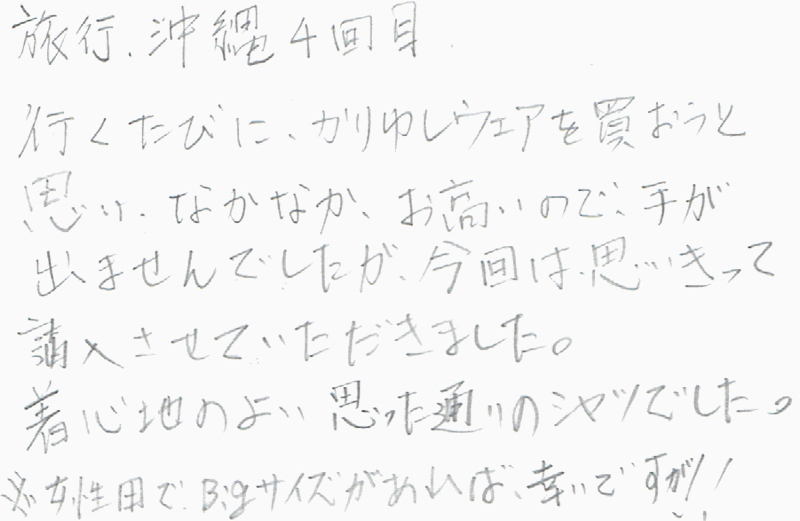 旅行、沖縄4回目
行くたびに、かりゆしウェアを買おうと
思い、なかなか、お高いので、手が
出ませんでしたが、今回は、思いきって
購入させていただきました。
着心地のよい思った通りのシャツでした。
※女性用で、Bigサイズがあれば、幸いですが!!